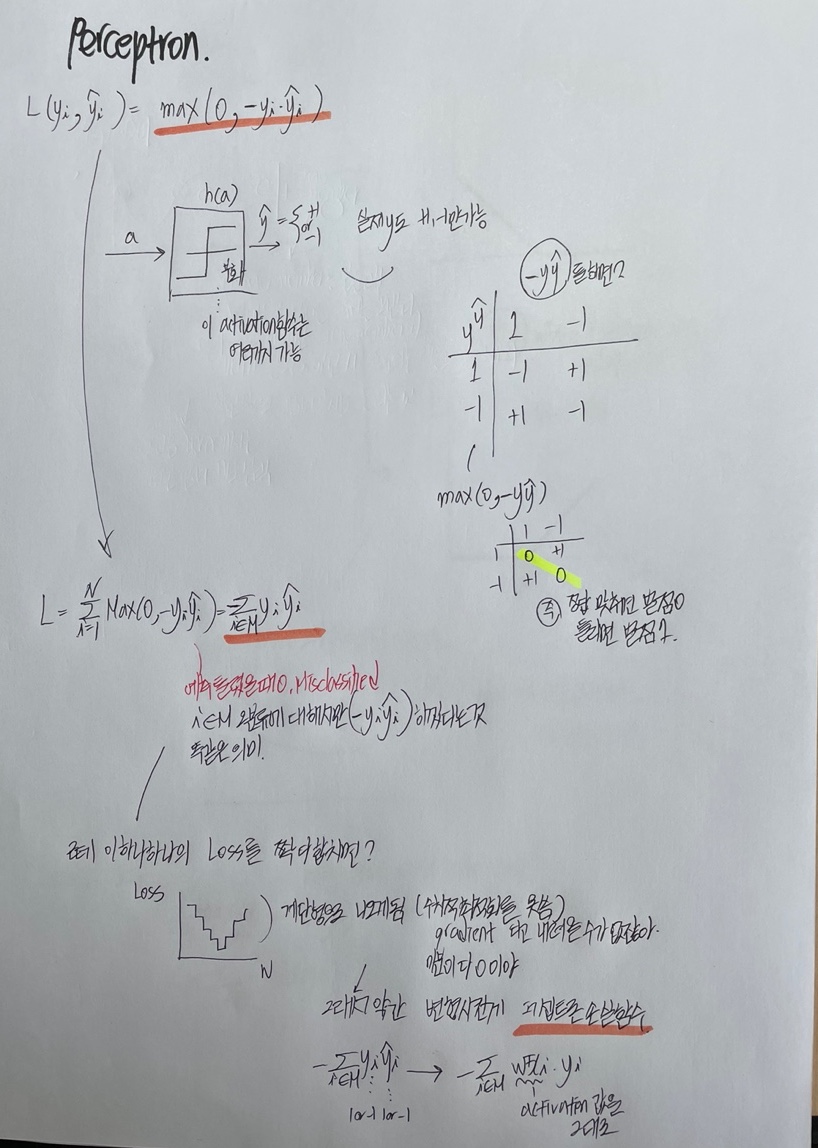 Perceptron.
L(yᵢ, ŷᵢ) = max(0, -yᵢ·ŷᵢ)
h(a)
a
ŷ = { +1 or -1
실제 y도 +1, -1만 가능
부호
이 activation 함수는
여러가지 가능
-yŷ 를 하면?
y ŷ 1 -1
1 -1 +1
-1 +1 -1
max(0, -yŷ)
1 -1
1 0 +1
-1 +1 0
즉, 정답 맞추면 벌점 0
틀리면 벌점 1.
L = Σᵢ₌₁ᴺ Max(0, -yᵢŷᵢ) = -Σ_{i∈M} yᵢŷᵢ
0, Misclassified
i∈M 오분류에 대해서만 (-yᵢŷᵢ) 하겠다는것
똑같은 의미.
근데 이 하나하나의 Loss를 쫙 다 합치면?
Loss
N
계단형으로 나오게됨 (수치적 최적화를 못씀)
gradient 타고 내려올 수가 없잖아.
미분이 다 0이야
그래서 약간 변형시킨게 퍼셉트론 손실함수
-Σ_{i∈M} yᵢŷᵢ → -Σ_{i∈M} wᵀxᵢ·yᵢ
1 or -1 1 or -1
activation 값을
그대로